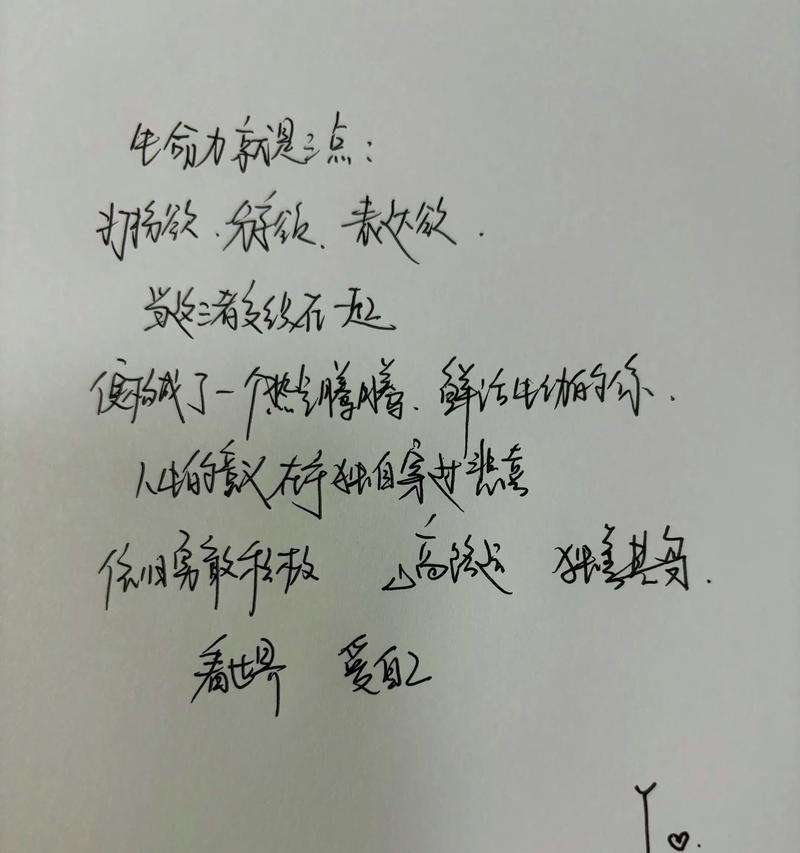 生命力就是三点:
打扮欲、分享欲、表达欲.
当这三者交织在一起
便构成了一个热气腾腾、鲜活生动的你.
人生的意义在于独自穿过悲喜
依旧勇敢积极 山高路远 独善其身.
看世界 爱自己
Y♡.